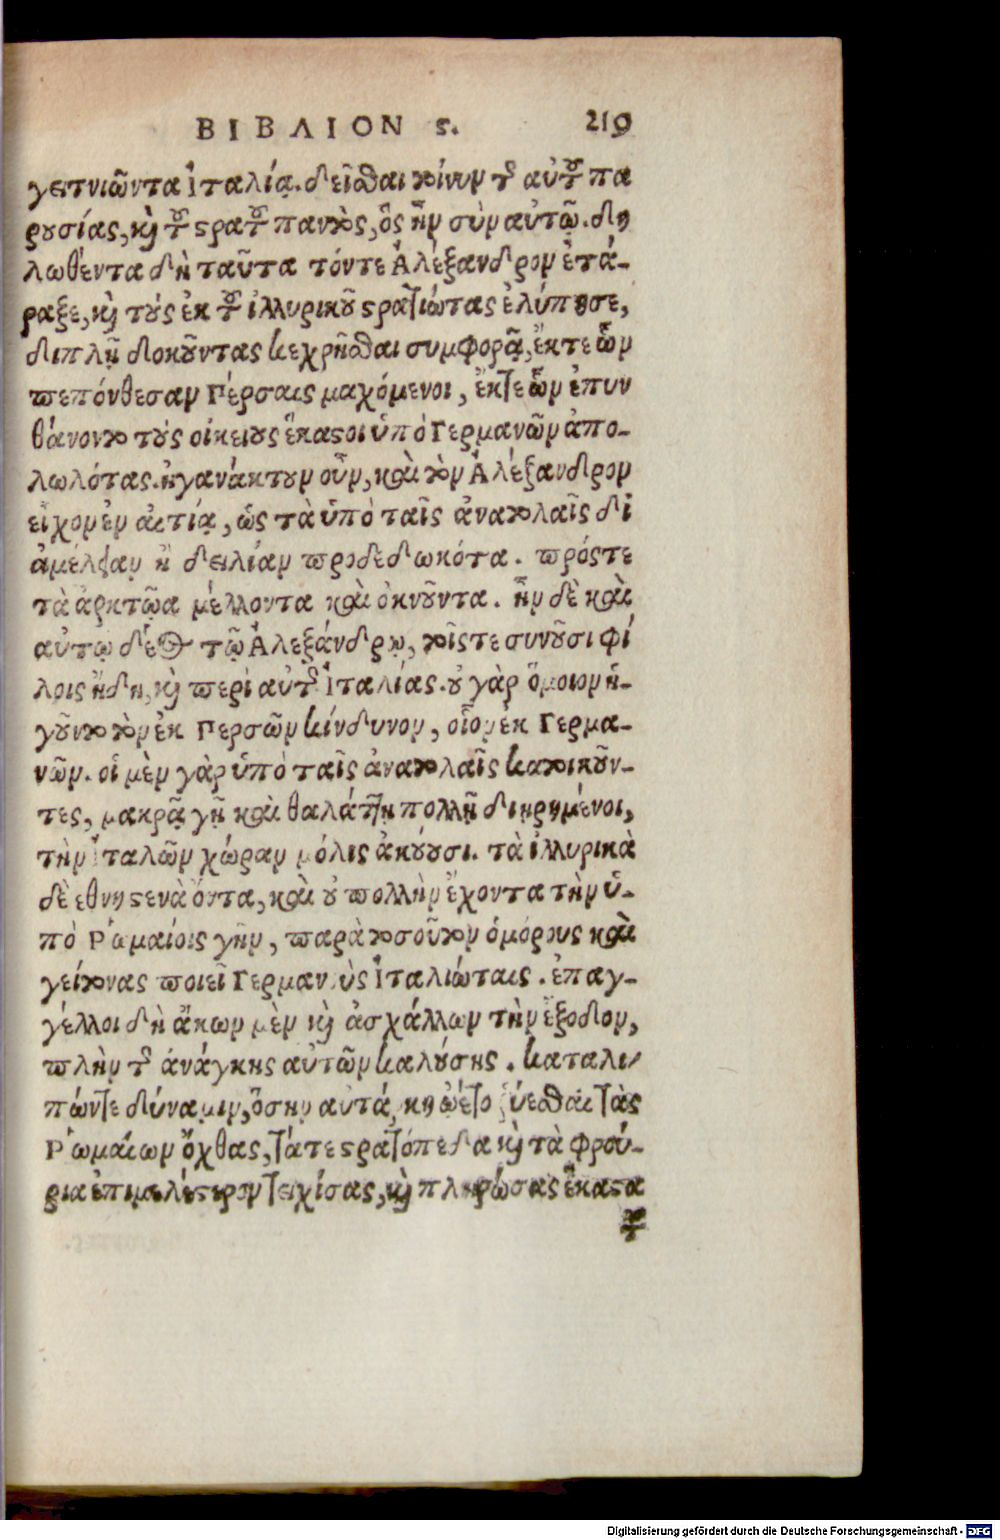 ΒΙΒΛΙΟΝ ϛ. 219
γειτνιῶντα Ἰταλίᾳ. δεῖσθαι τοίνυν τῆς αὐτοῦ πα
ρουσίας, καὶ τοῦ στρατοῦ παντὸς, ὃς ἦν σὺν αὐτῷ. δη
λωθέντα δὴ ταῦτα τόντε Ἀλέξανδρον ἐτά-
ραξε, καὶ τοὺς ἐκ τοῦ ἰλλυρικοῦ στρατιώτας ἐλύπησε,
διπλῇ δοκοῦντας κεχρῆσθαι συμφορᾷ, ἔκτε ὧν
πεπόνθεσαν Πέρσαις μαχόμενοι, ἔκτε ὧν ἐπυν
θάνοντο τοὺς οἰκείους ἕκαστοι ὑπὸ Γερμανῶν ἀπο-
λωλότας. ἠγανάκτουν οὖν, καὶ τὸν Ἀλέξανδρον
εἶχον ἐν αἰτίᾳ, ὡς τὰ ὑπὸ ταῖς ἀνατολαῖς δι
ἀμέλειαν ἢ δειλίαν προδεδωκότα. πρόστε
τὰ ἀρκτῷα μέλλοντα καὶ ὀκνοῦντα. ἦν δὲ καὶ
αὐτῷ δέος τῷ Ἀλεξάνδρῳ, τοῖστε συνοῦσι φί
λοις ἤδη, καὶ περὶ αὐτῆς Ἰταλίας. οὐ γὰρ ὅμοιον ἡ-
γοῦντο τὸν ἐκ Περσῶν κίνδυνον, οἷον ἐκ Γερμα-
νῶν. οἱ μὲν γὰρ ὑπὸ ταῖς ἀνατολαῖς κατοικοῦν-
τες, μακρᾷ γῇ καὶ θαλάττῃ πολλῇ διῃρημένοι,
τὴν Ἰταλῶν χώραν μόλις ἀκούουσι. τὰ ἰλλυρικὰ
δὲ ἔθνη στενὰ ὄντα, καὶ οὐ πολλὴν ἔχοντα τὴν ὑ-
πὸ Ῥωμαίοις γῆν, παρὰ τοσοῦτον ὁμόρους καὶ
γείτονας ποιεῖ Γερμανοὺς Ἰταλιώταις. ἐπαγ-
γέλλοι δὴ ἄκων μὲν καὶ ἀσχάλλων τὴν ἔξοδον,
πλὴν τῆς ἀνάγκης αὐτῶν καλούσης. καταλι
πώντε δύναμιν, ὅσην αὐτάρκη ᾤετο ῥύεσθαι τὰς
Ῥωμαίων ὄχθας, τάτε στρατόπεδα καὶ τὰ φρού-
ρια ἐπιμελέστερον τειχίσας, καὶ πληρώσας ἕκαστα
τοῦ
Digitalisierung gefördert durch die Deutsche Forschungsgemeinschaft - DFG